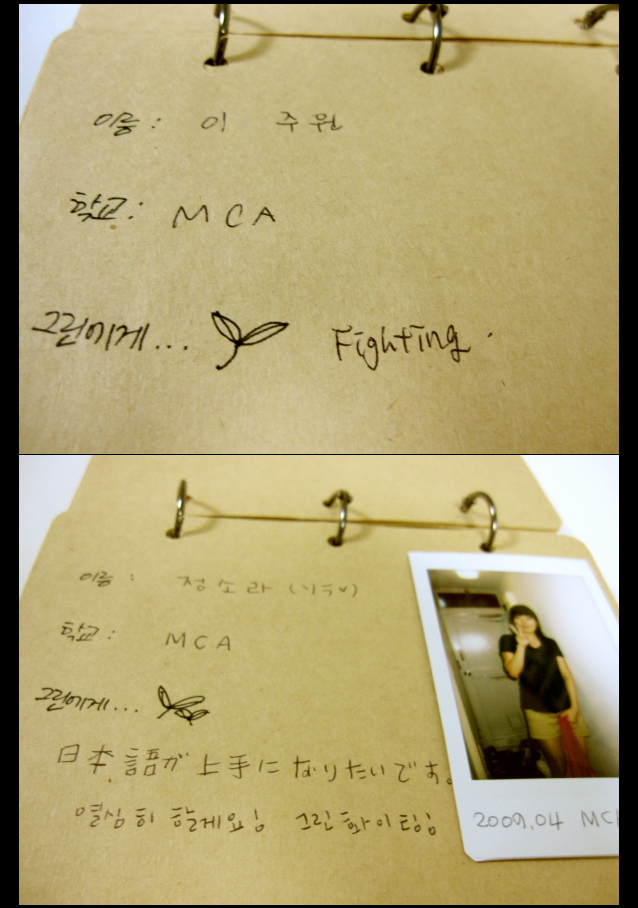 이름 : 이 주원
학교 : MCA
그린에게... Fighting.
이름 : 정소라
학교 : MCA
그린에게...
日本語が上手になりたいです。
열심히 할게요! 그린 화이팅!
2009.04 MC